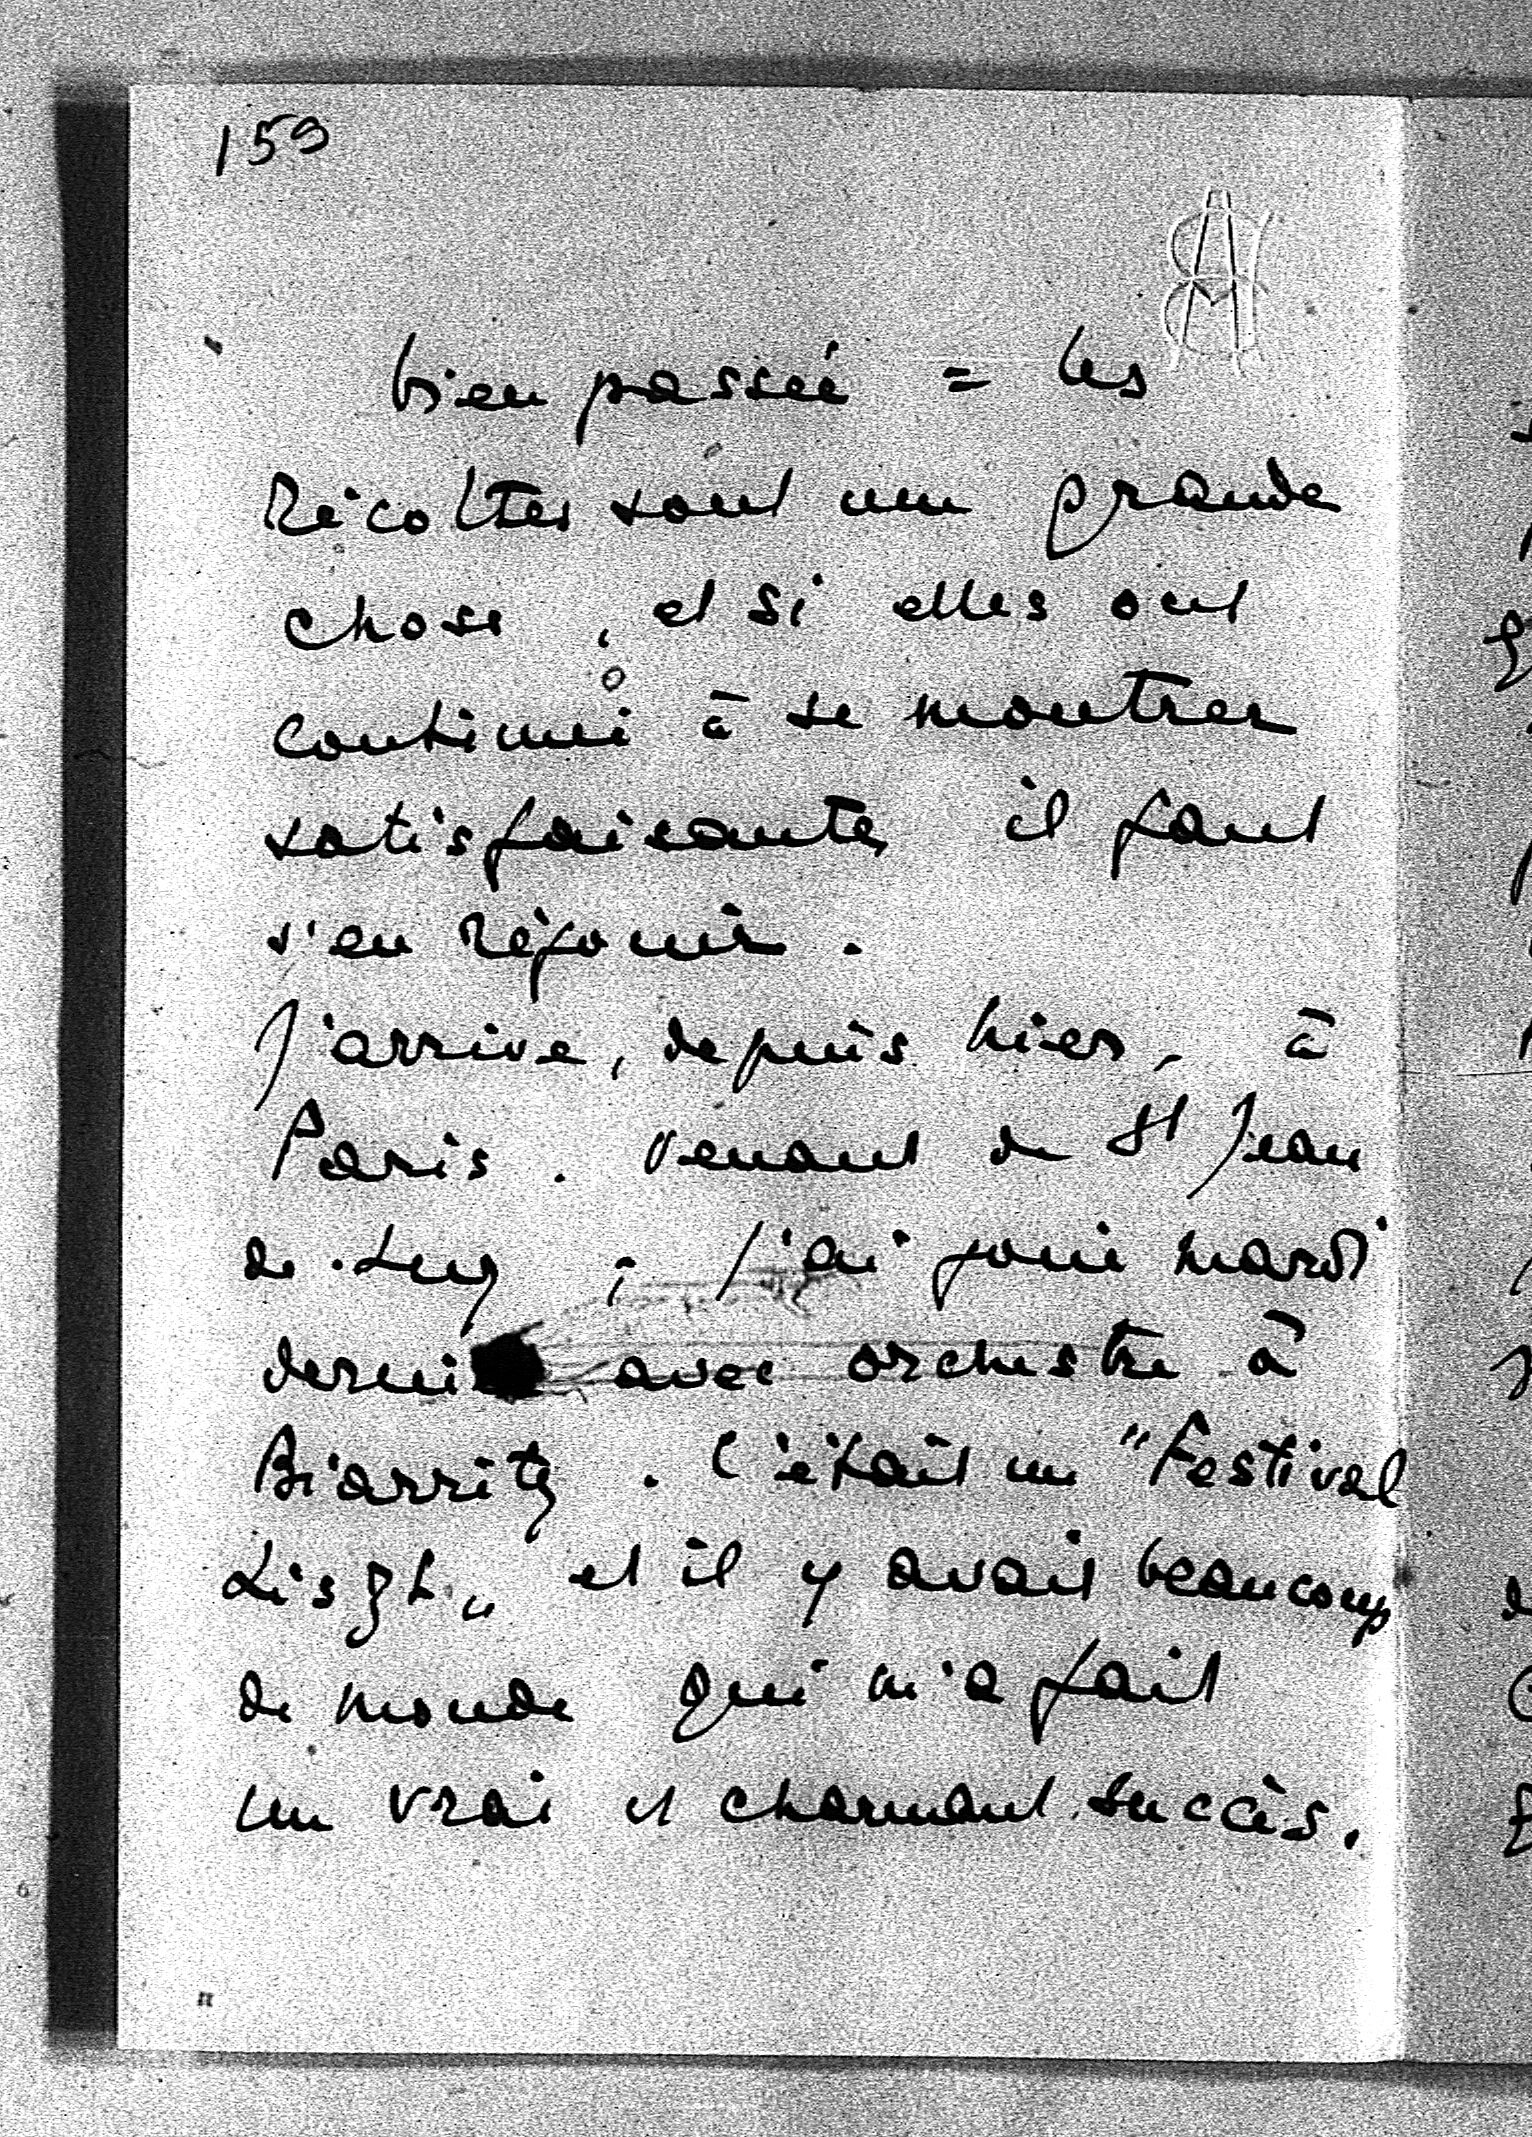 159
bien passée = les
Récoltes sont une grande
chose, et si elles ont
continué à se montrer
satisfaisantes il faut
s'en réjouir.
J'arrive, depuis hier, à
Paris. venant de St Jean
de Luz ; j'ai joué mardi
dernier avec orchestre à
Biarritz. C'était un "Festival
Liszt" et il y avait beaucoup
de monde qui m'a fait
un vrai et charmant succès.